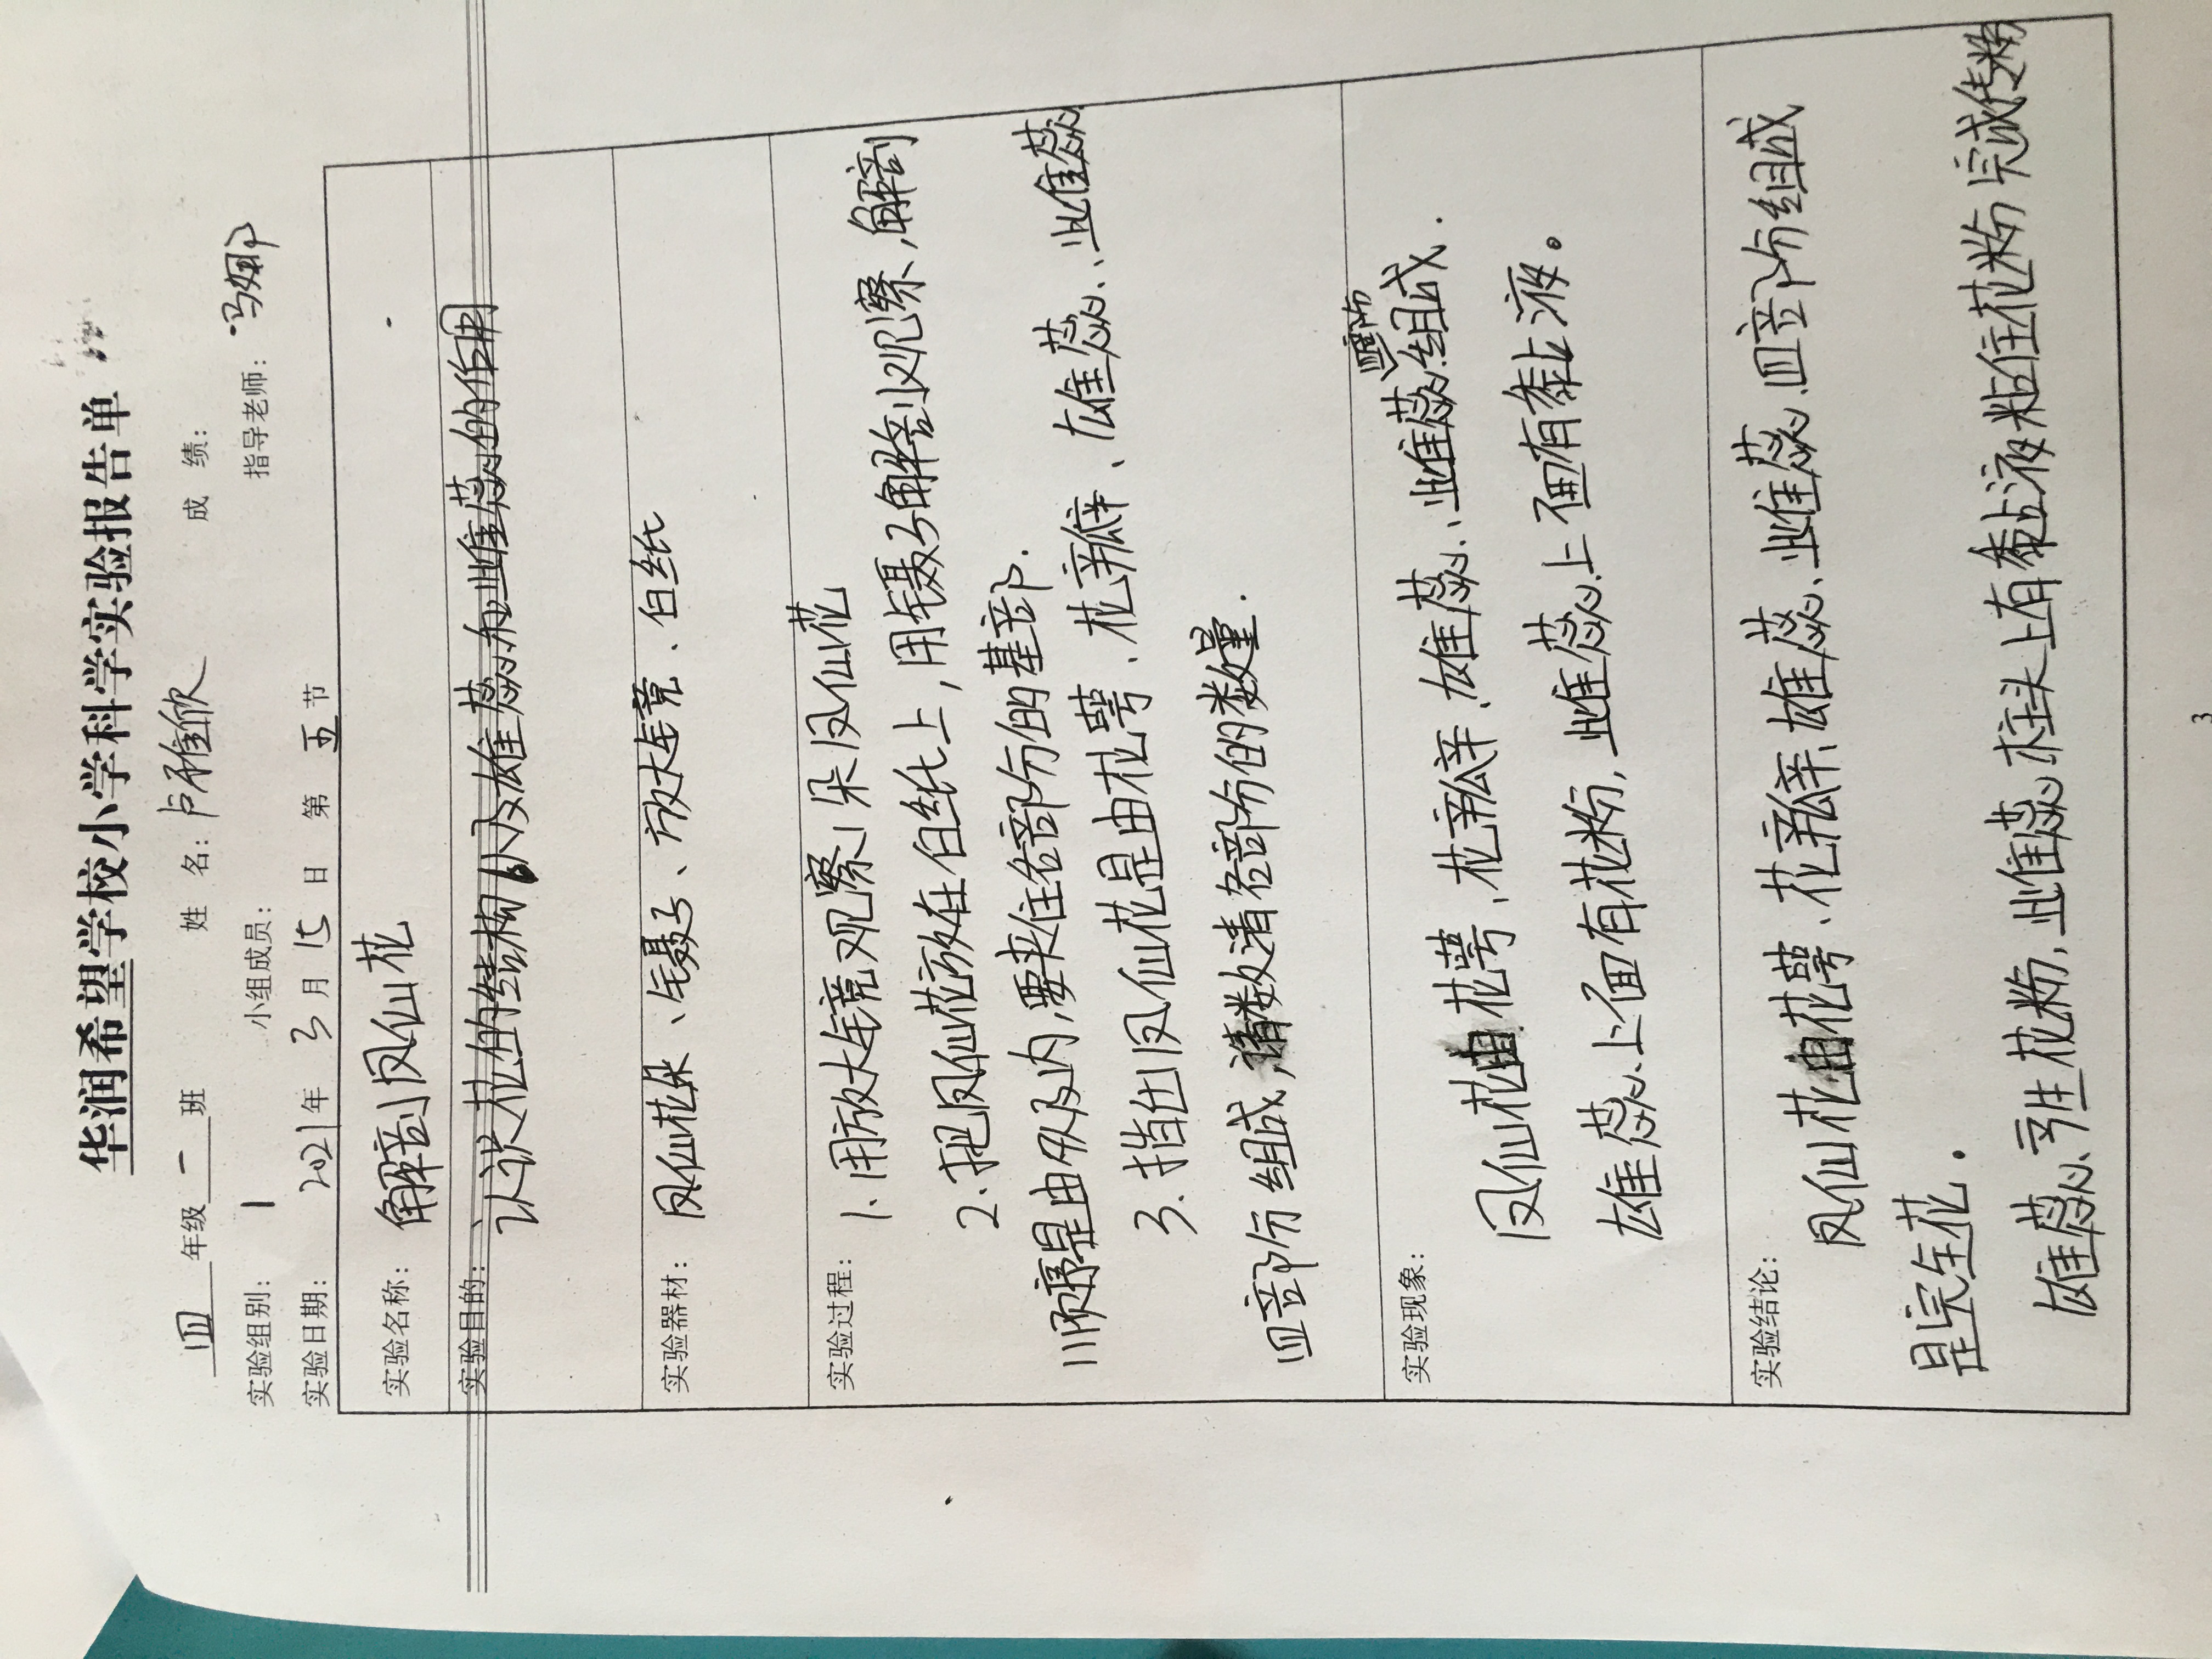 华润希望学校小学科学实验报告单
四年级一班 姓 名：卢雅欣 成 绩：
实验组别：1 小组成员： 指导老师：冯娜
实验日期：2021年3月15日 第五节
实验名称：解剖凤仙花
实验目的：
认识花的结构以及雄蕊和雌蕊的作用
实验器材：
凤仙花朵、镊子、放大镜、白纸
实验过程：
1.用放大镜观察1朵凤仙花
2.把凤仙花放在白纸上，用镊子解剖观察，解剖
顺序是由外及内，要夹住各部份的基部.
3.指出凤仙花是由花萼、花瓣、雄蕊、雌蕊
四部份组成，数清各部份的数量.
实验现象：
凤仙花由花萼、花瓣、雄蕊、雌蕊四部份组成.
雄蕊上面有花粉，雌蕊上面有黏液。
实验结论：
凤仙花由花萼、花瓣、雄蕊、雌蕊四部份组成
是完全花.
雄蕊产生花粉，雌蕊柱头上有黏液粘住花粉完成传粉
3